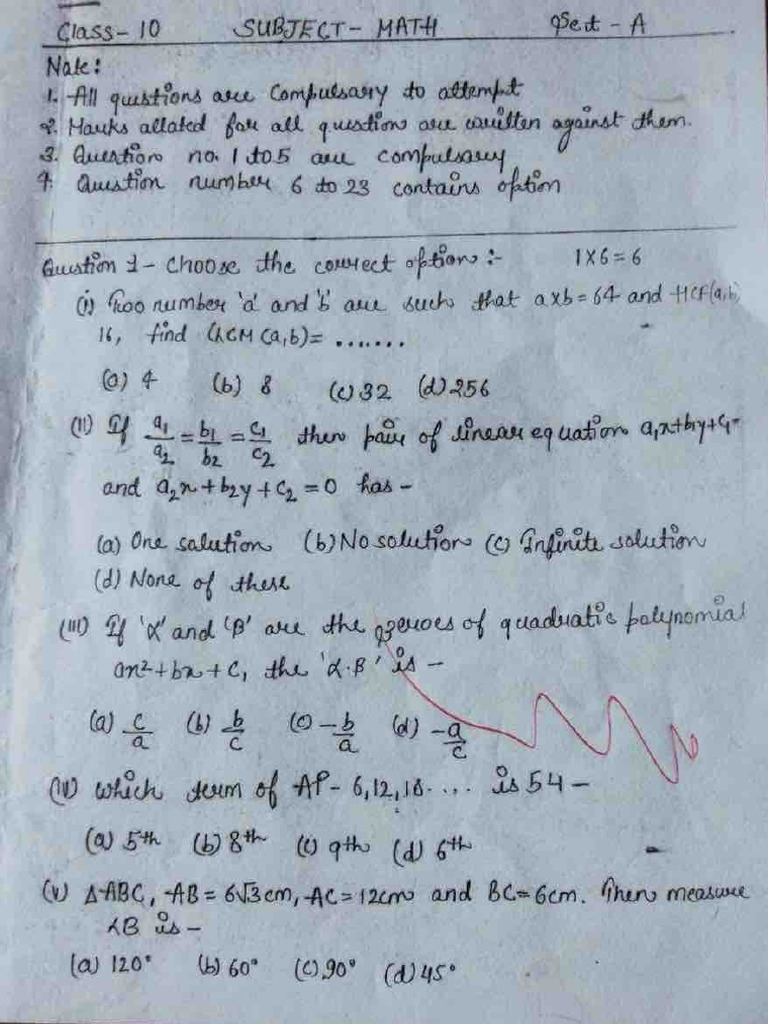 Class-10 SUBJECT- MATH Set - A
Note:
1. All questions are Compulsary to attempt
2. Marks allated for all question are written against them.
3. Question no. 1 to 5 are compulsary
4. Question number 6 to 23 contains option
Question 1 - Choose the correct option :- 1x6=6
(i) Two number 'a' and 'b' are such that axb=64 and HCF(a,b)
16, find LCM (a,b)= .......
(a) 4 (b) 8 (c) 32 (d) 256
(II) If a1/a2 = b1/b2 = c1/c2 then pair of linear equation a1x+b1y+c1=
and a2x+b2y+c2=0 has -
(a) One solution (b) No solution (c) Infinite solution
(d) None of these
(III) If 'α' and 'β' are the zeroes of quadratic polynomial
ax²+bx+c, the 'α.β' is -
(a) c/a (b) b/c (c) -b/a (d) -a/c
(IV) which term of AP- 6,12,18.... is 54 -
(a) 5th (b) 8th (c) 9th (d) 6th
(v) ΔABC, AB=6√3cm, AC=12cm and BC=6cm. Then measure
∠B is -
(a) 120° (b) 60° (c) 90° (d) 45°